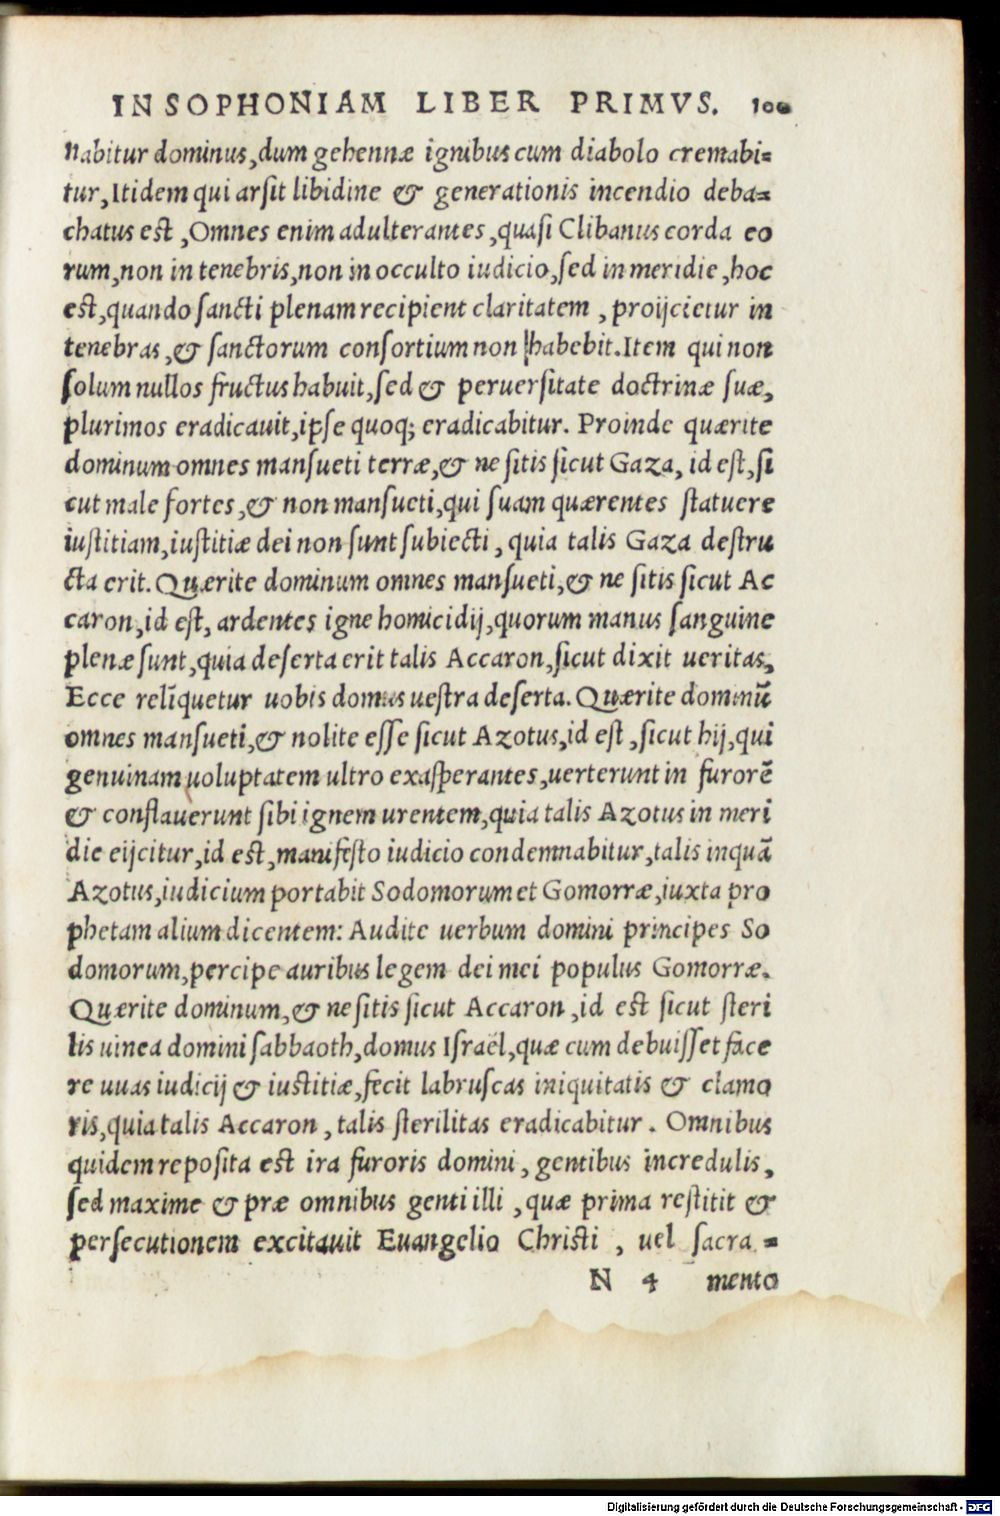 IN SOPHONIAM LIBER PRIMVS. 100
nabitur dominus, dum gehennæ ignibus cum diabolo cremabi=
tur, Itidem qui arsit libidine & generationis incendio deba=
chatus est, Omnes enim adulterantes, quasi Clibanus corda eo
rum, non in tenebris, non in occulto iudicio, sed in meridie, hoc
est, quando sancti plenam recipient claritatem, proijcietur in
tenebras, & sanctorum consortium non habebit. Item qui non
solum nullos fructus habuit, sed & peruersitate doctrinæ suæ,
plurimos eradicauit, ipse quoq; eradicabitur. Proinde quærite
dominum omnes mansueti terræ, & ne sitis sicut Gaza, id est, si
cut male fortes, & non mansueti, qui suam quærentes statuere
iustitiam, iustitiæ dei non sunt subiecti, quia talis Gaza destru
cta erit. Quærite dominum omnes mansueti, & ne sitis sicut Ac
caron, id est, ardentes igne homicidij, quorum manus sanguine
plenæ sunt, quia deserta erit talis Accaron, sicut dixit ueritas,
Ecce relīquetur uobis domus uestra deserta. Quærite dominū
omnes mansueti, & nolite esse sicut Azotus, id est, sicut hij, qui
genuinam uoluptatem ultro exasperantes, uerterunt in furorē
& conflauerunt sibi ignem urentem, quia talis Azotus in meri
die eijcitur, id est, manifesto iudicio condemnabitur, talis inquā
Azotus, iudicium portabit Sodomorum et Gomorræ, iuxta pro
phetam alium dicentem: Audite uerbum domini principes So
domorum, percipe auribus legem dei mei populus Gomorræ.
Quærite dominum, & ne sitis sicut Accaron, id est sicut steri
lis uinea domini sabbaoth, domus Israël, quæ cum debuisset face
re uuas iudicij & iustitiæ, fecit labruscas iniquitatis & clamo
ris, quia talis Accaron, talis sterilitas eradicabitur. Omnibus
quidem reposita est ira furoris domini, gentibus incredulis,
sed maxime & præ omnibus genti illi, quæ prima restitit &
persecutionem excitauit Euangelio Christi, uel sacra=
N 4 mento
Digitalisierung gefördert durch die Deutsche Forschungsgemeinschaft - DFG